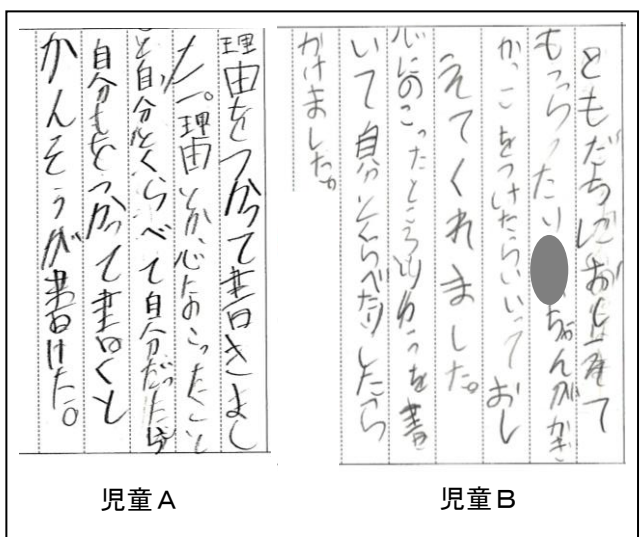 理由をつかって書きまし
た。理由とか、心にのこったこと
と自分とくらべて自分だったら
自分をつかって書くと
かんそうが書けた。
児童A
ともだちにおしえて
もらったり ちゃんがかぎ
かっこをつけたらいいっておし
えてくれました。
心にのこったところ を書
いて自分とくらべたりしたら
かけました。
児童B